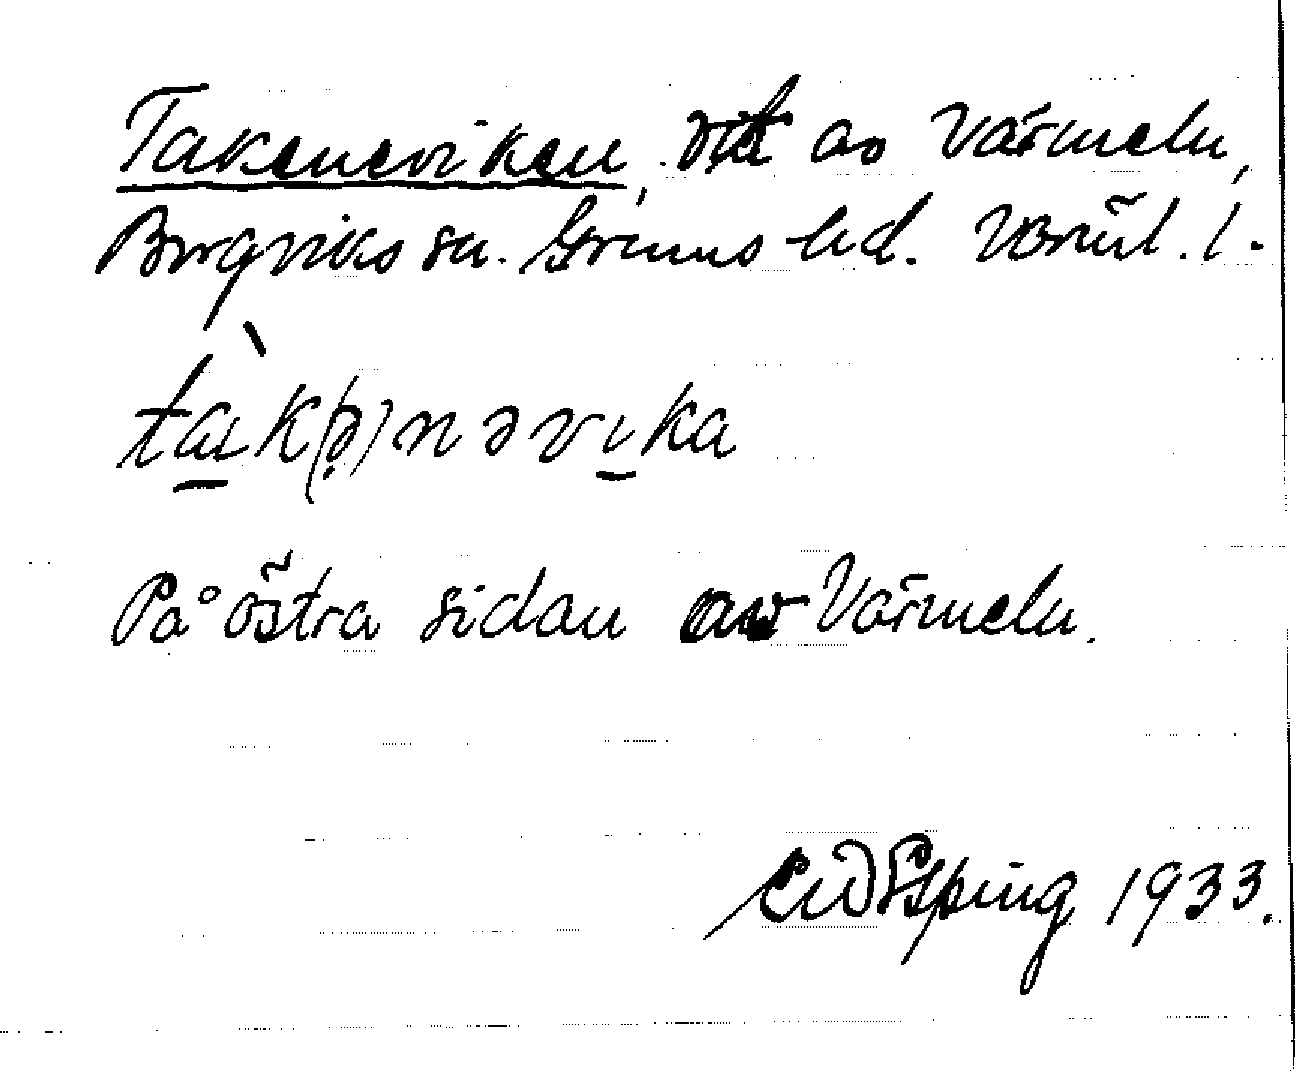 Takeneviken, vik av Värmeln,
Borgviks sn. Grums hd. Värml. l.
tàk(ə)nəvika
På östra sidan av Värmeln.
1933.